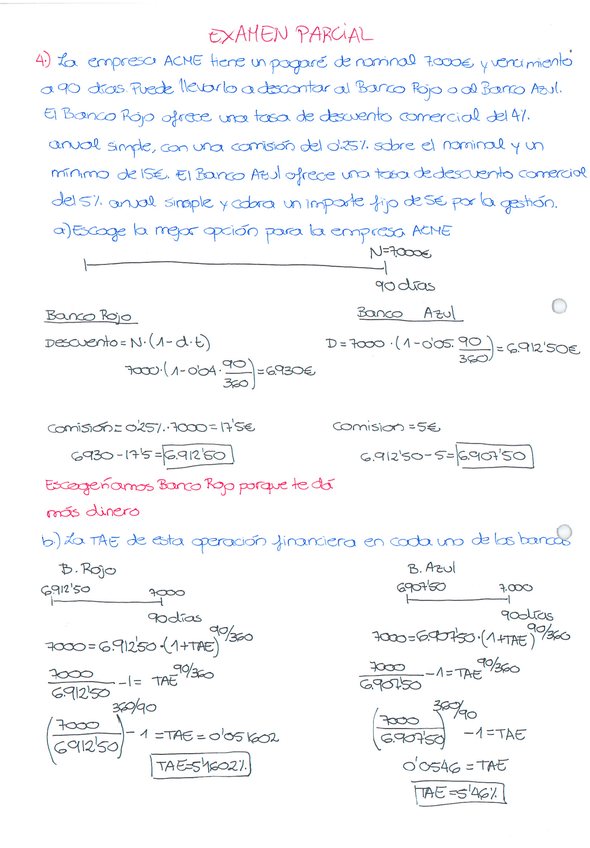 EXAMEN PARCIAL
4.) La empresa ACME tiene un pagaré de nominal 7.000€ y vencimiento
a 90 días. Puede llevarlo a descontar al Banco Rojo o al Banco Azul.
El Banco Rojo ofrece una tasa de descuento comercial del 4%
anual simple, con una comisión del 0'25% sobre el nominal y un
mínimo de 15€. El Banco Azul ofrece una tasa de descuento comercial
del 5% anual simple y cobra un importe fijo de 5€ por la gestión.
a) Escoge la mejor opción para la empresa ACME
N=7.000€
90 días
Banco Rojo
Descuento = N·(1-d·t)
7000·(1-0'04·90/360)=6.930€
Comisión = 0'25%·7000=17'5€
6930-17'5=6.912'50
Banco Azul
D=7000·(1-0'05·90/360)=6.912'50€
Comision = 5€
6.912'50-5=6.907'50
Escogeríamos Banco Rojo porque te dá
más dinero
b) La TAE de esta operación financiera en cada uno de los bancos
B. Rojo
6912'50 7000
90 días
7000=6.912'50·(1+TAE)^90/360
7000/6.912'50 -1= TAE^90/360
(7000/6912'50)^360/90 -1=TAE=0'051602
TAE=5'1602%
B. Azul
6907'50 7.000
90 días
7000=6.907'50·(1+TAE)^90/360
7000/6.907'50 -1=TAE^90/360
(7000/6.907'50)^360/90 -1=TAE
0'0546=TAE
TAE=5'46%